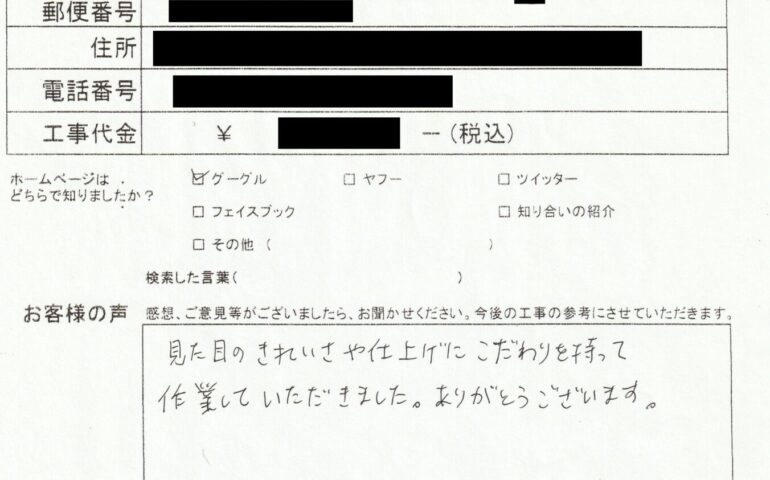 郵便番号
住所
電話番号
工事代金 ¥ ー(税込)
ホームページは
どちらで知りましたか？
☑ グーグル □ ヤフー □ ツイッター
□ フェイスブック □ 知り合いの紹介
□ その他 ( )
検索した言葉( )
お客様の声 感想、ご意見等がございましたら、お聞かせください。今後の工事の参考にさせていただきます。
見た目のきれいさや仕上げにこだわりを持って
作業していただきました。ありがとうございます。